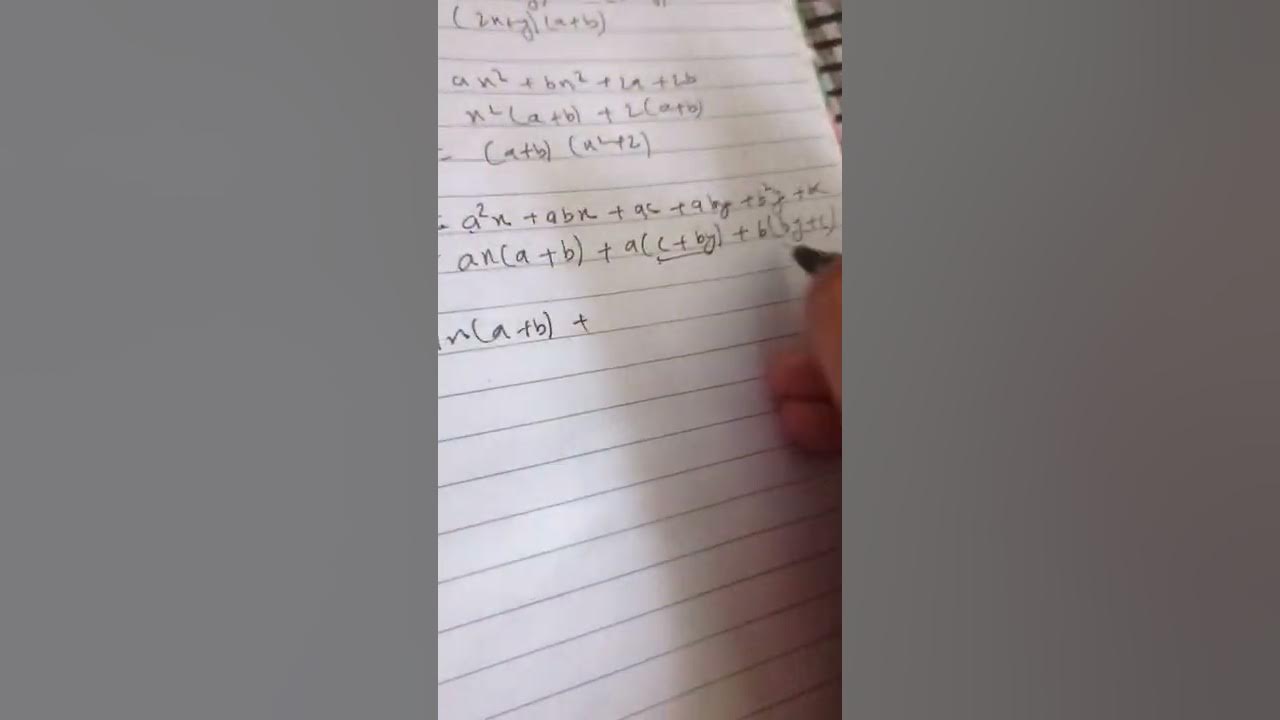 (2x+y)(a+b)
ax² + bx² + 2a + 2b
x²(a+b) + 2(a+b)
= (a+b) (x²+2)
= a²x + abx + ac + aby + b²y +
ax(a+b) + a(c+by) + b(by+c)
x(a+b) +